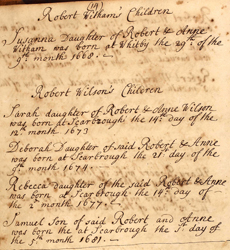 (14)
Robert Witham's Children
Susanna Daughter of Robert & Anne
Witham was born at Whitby the 29th of the
9th month 1668.
Robert Wilson's Children
Sarah daughter of Robert & Anne Wilson
was born at Scarbrough the 14th day of the
12th month 1673
Deborah Daughter of said Robert & Annie
was born at Scarbrough the 21st day of the
month 1674
Rebecca daughter of the said Robert & Anne
was born at Scarbrough the 14th day of
the month 1677.
Samuel Son of said Robert and Anne
was born the at Scarbrough the 1st day of
the 3th month 1681.